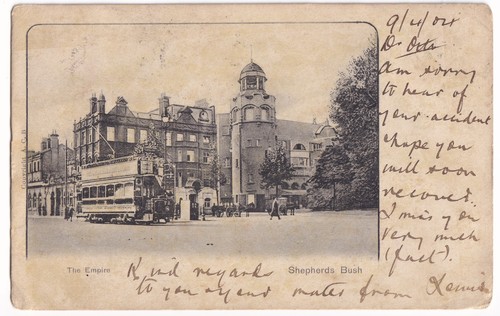 9/4/04
Dr Otto
Am sorry
to hear of
your accident
& hope you
will soon
recover.
I miss you
Very much
(fact).
The Empire
Shepherds Bush
Kind regards
to you & your mater from
Copyright